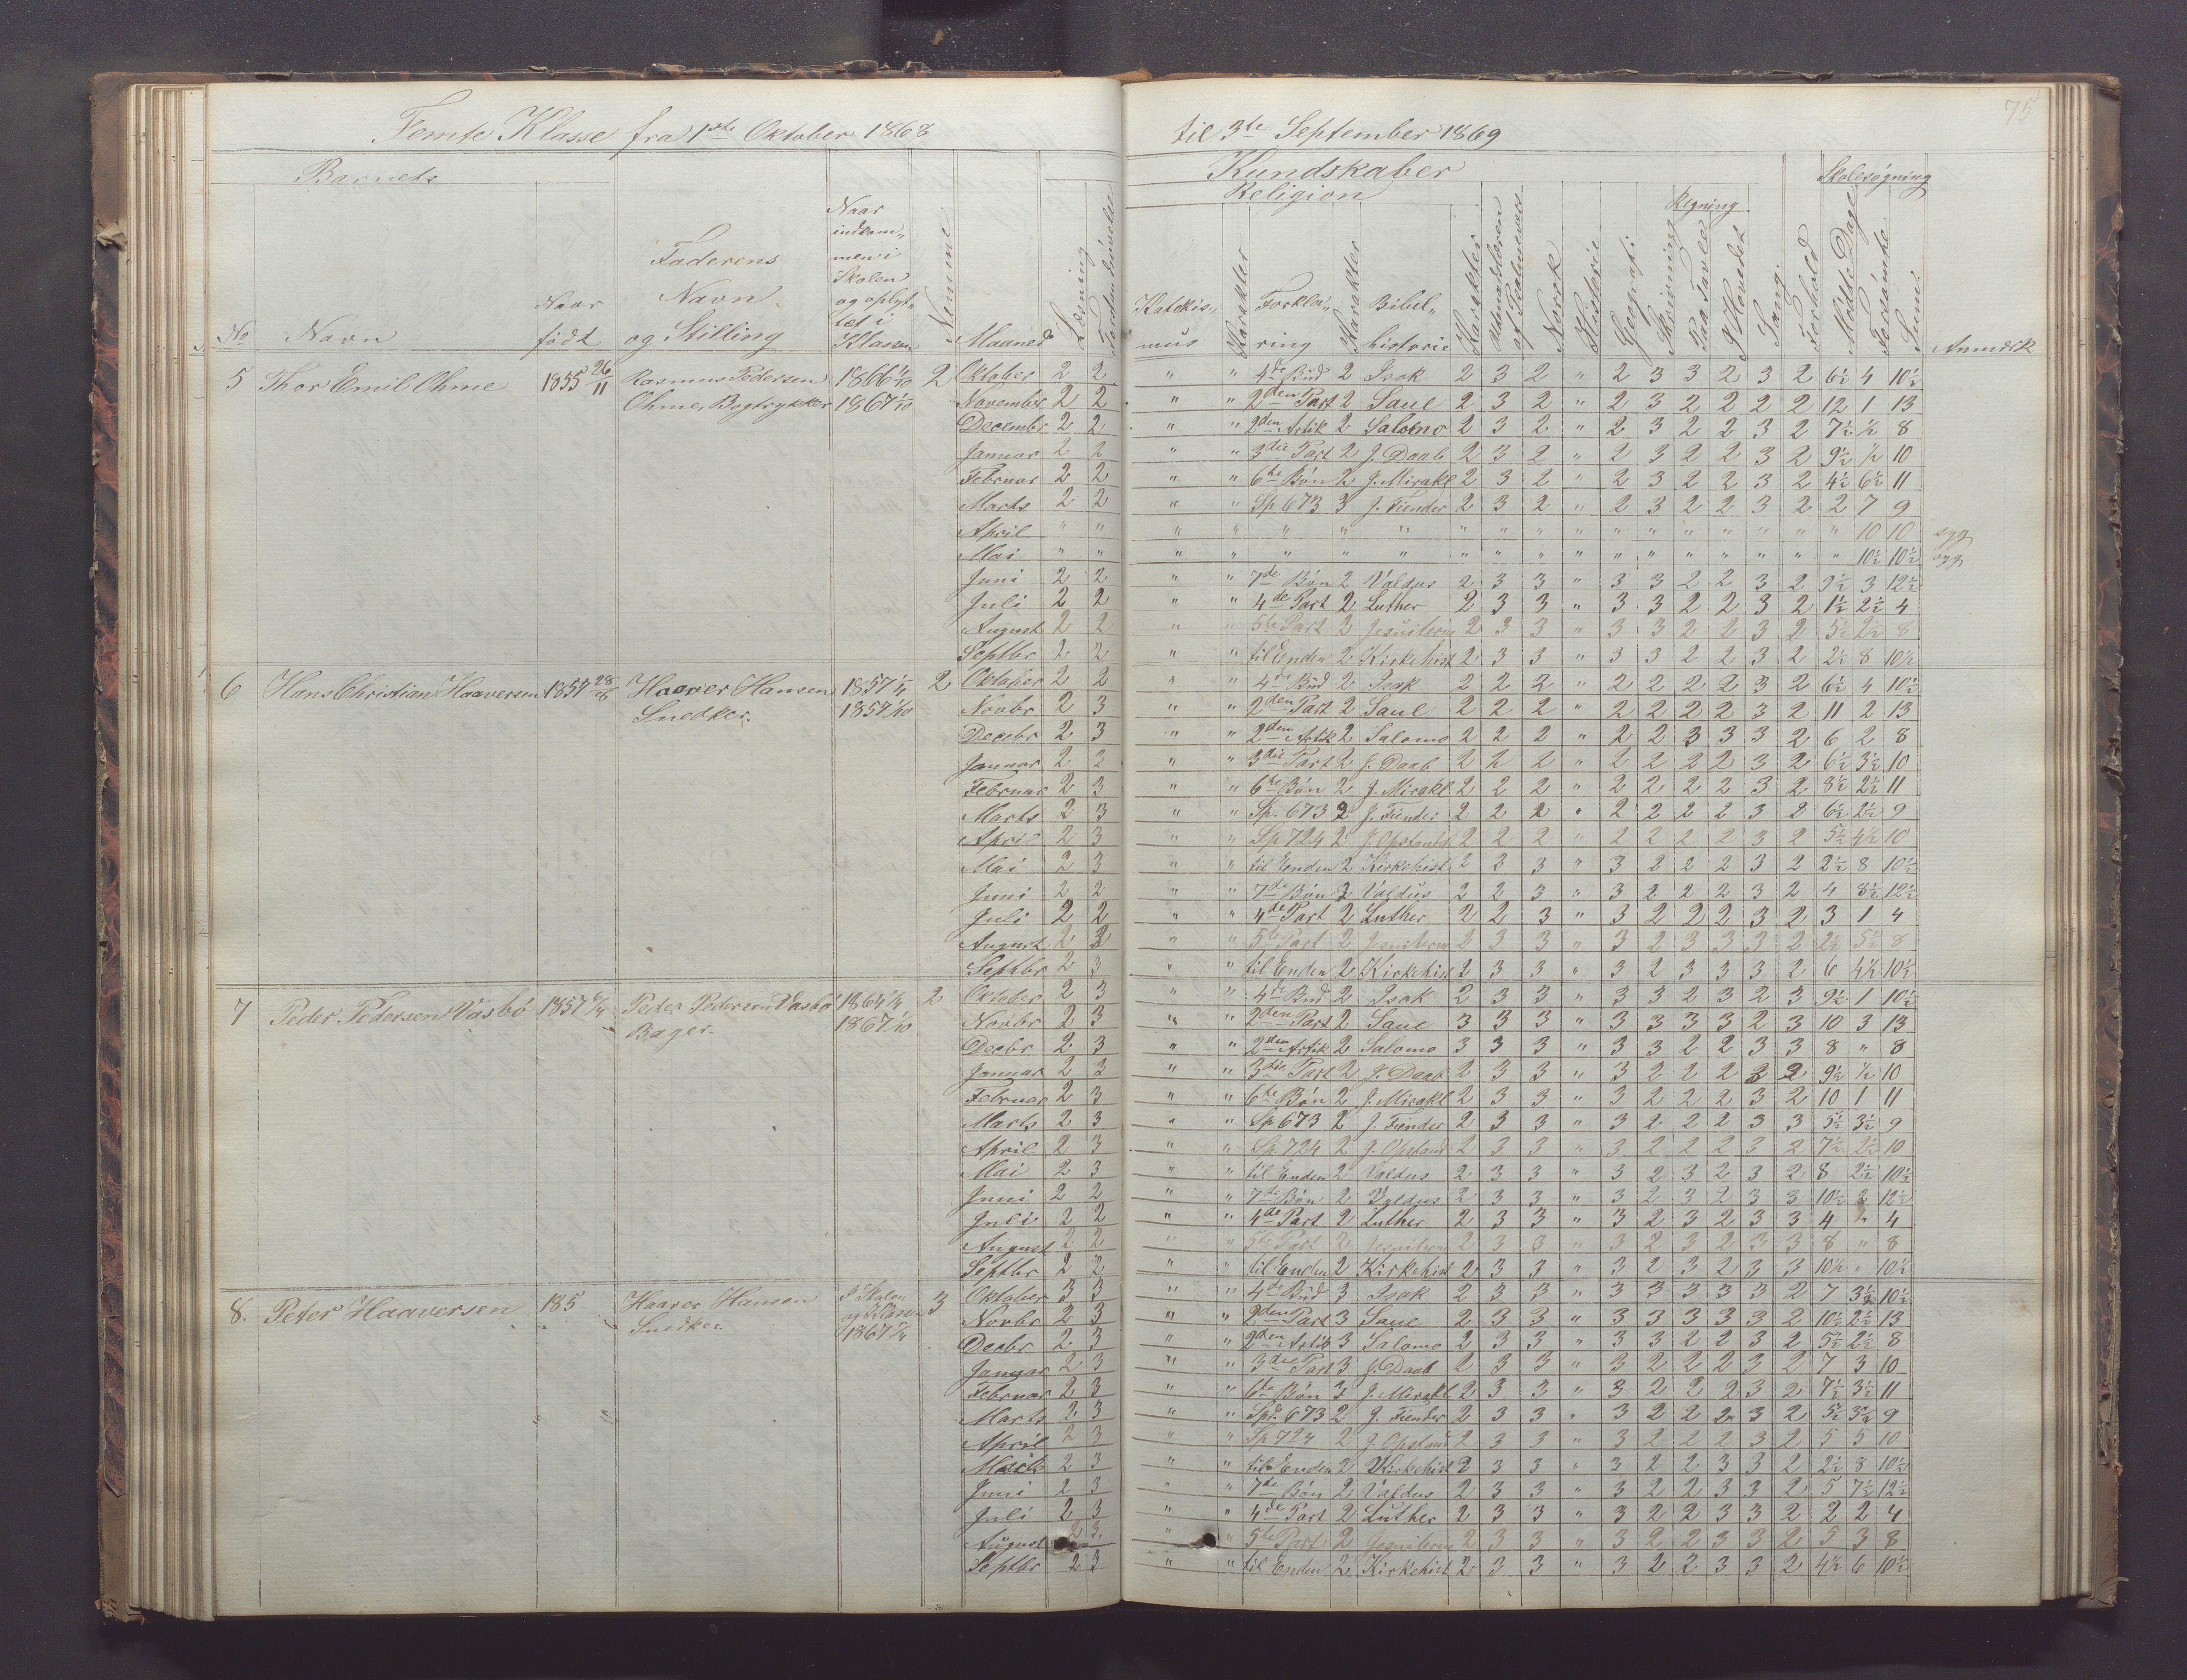 75
Femte Klasse fra 1ste Oktober 1868 til 3te September 1869
Barnets
Kundskaber
Skolesøgning
Religion
Regning
No Navn
Naar født
Faderens Navn og Stilling
Naar indkommen i Skolen og oplyttet i Klassen
Nemme
Maaned
Læsning
Forstandsøvelse
Katekismus
Karakter
Forklaring
Karakter
Bibelhistorie
Karakter
Udenadlæren af Psalmevers
Norsk
Historie
Geografi
Skrivning
Paa Tavle
I Hovedet
Sang
Forhold
Mødte Dage
Forsømte
Sum
Anmærk
5 Thor Emil Ohme 1855 26/11 Rasmus Pedersen Ohme, Bogtrykker 1866 1/10 1867 1/10 2
Oktober 2 2 " " 4de Bud 2 Isak 2 3 2 " 2 3 3 2 3 2 6½ 4 10½
November 2 2 " " 2den Part 2 Saul 2 3 2 " 2 3 2 2 2 2 12 1 13
Decembr 2 2 " " 2den Artik 2 Salomo 2 3 2 " 2 3 2 2 3 2 7½ ½ 8
Januar 2 2 " " 3die Part 2 J. Daab 2 3 2 " 2 3 2 2 3 2 9½ ½ 10
Februar 2 2 " " 6te Bøn 2 J. Mirakl 2 3 2 " 2 3 2 2 3 2 4½ 6½ 11
Marts 2 2 " " Sp 673 3 J. Fiender 2 3 2 " 2 3 2 2 3 2 2 7 9
April " " " " " " " " " " " " " " " " " " " 10 10 syg
Mai " " " " " " " " " " " " " " " " " " " 10½ 10½ syg
Juni 2 2 " " 7de Bøn 2 Valdus 2 3 3 " 3 3 2 2 3 2 9½ 3 12½
Juli 2 2 " " 4de Part 2 Luther 2 3 3 " 3 3 2 2 3 2 1½ 2½ 4
August 2 2 " " 5te Part 2 Jesuitern 2 3 3 " 3 3 2 2 3 2 5½ 2½ 8
Septbr 2 2 " " til Enden 2 Kirkehist 2 3 3 " 3 3 2 2 3 2 2½ 8 10½
6 Hans Christian Haaversen 1857 28/8 Haaver Hansen Snedker. 1857 1/4 1857 1/10 2
Oktober 2 2 " " 4de Bud 2 Isak 2 2 2 " 2 2 2 2 3 2 6½ 4 10½
Novbr 2 3 " " 2den Part 2 Saul 2 2 2 " 2 2 2 2 3 2 11 2 13
Decbr 2 3 " " 2den Artik 2 Salomo 2 2 2 " 2 2 3 3 3 2 6 2 8
Januar 2 2 " " 3die Part 2 J. Daab 2 2 2 " 2 2 2 2 3 2 6½ 3½ 10
Februar 2 3 " " 6te Bøn 2 J. Mirakl 2 2 2 " 2 2 2 2 3 2 8½ 2½ 11
Marts 2 3 " " Sp. 673 2 J. Fiender 2 2 2 " 2 2 2 2 3 2 6½ 2½ 9
April 2 3 " " Sp 724 2 J. Opstandl 2 2 2 " 2 2 2 2 3 2 5½ 4½ 10
Mai 2 3 " " til Enden 2 Kirkehist 2 2 3 " 3 2 2 2 3 2 2½ 8 10½
Juni 2 2 " " 7de Bøn 2 Valdus 2 2 3 " 3 2 2 2 3 2 4 8½ 12½
Juli 2 2 " " 4de Part 2 Luther 2 2 3 " 3 2 2 2 3 2 3 1 4
August 2 2 " " 5te Part 2 Jesuitern 2 3 3 " 3 2 3 3 3 2 2½ 5½ 8
Septbr 2 3 " " til Enden 2 Kirkehist 2 3 3 " 3 2 3 3 3 2 6 4½ 10½
7 Peder Pedersen Vasbø 1857 Peder Pedersen Vasbø Bager. 1864 1/4 1867 1/10 2
Oktober 2 3 " " 4de Bud 2 Isak 2 3 3 " 3 3 2 3 2 3 9½ 1 10½
Novbr 2 3 " " 2den Part 2 Saul 3 3 3 " 3 3 3 3 2 3 10 3 13
Decbr 2 3 " " 2den Artik 2 Salomo 3 3 3 " 3 3 2 2 3 3 8 " 8
Januar 2 3 " " 3die Part 2 J. Daab 2 3 3 " 3 2 2 2 2 2 9½ ½ 10
Februar 2 3 " " 6te Bøn 2 J. Mirakl 2 3 3 " 3 2 2 2 3 2 10 1 11
Marts 2 3 " " Sp 673 2 J. Fiender 2 3 3 " 3 2 2 2 3 3 5½ 3½ 9
April 2 3 " " Sp. 724 2 J. Opstand 2 3 3 " 3 2 2 2 3 2 7½ 2½ 10
Mai 2 3 " " til Enden 2 Valdus 2 3 3 " 3 2 3 2 3 2 8 2½ 10½
Juni 2 2 " " 7de Bøn 2 Valdus 2 3 3 " 3 2 3 2 3 3 10½ 2 12½
Juli 2 2 " " 4de Part 2 Luther 2 3 3 " 3 2 3 2 3 3 4 " 4
August 2 2 " " 5te Part 2 Jesuitern 2 3 3 " 3 2 3 2 3 3 8 " 8
Septbr 2 2 " " til Enden 2 Kirkehist 2 3 3 " 3 2 3 2 3 3 10½ " 10½
8. Peter Haaversen 185 Haaver Hansen Snedker I Skolen og Klassen 1867 1/4 3
Oktober 3 3 " " 4de Bud 3 Isak 2 3 3 " 3 3 3 3 3 2 7 3½ 10½
Novbr 2 3 " " 2den Part 3 Saul 2 3 3 " 3 3 3 3 3 2 10½ 2½ 13
Decbr 2 3 " " 2den Artik 3 Salomo 2 3 3 " 3 3 2 2 3 2 5½ 2½ 8
Januar 2 3 " " 3die Part 3 J. Daab 2 3 3 " 3 2 2 2 3 2 7 3 10
Februar 2 3 " " 6te Bøn 3 J. Mirakl 2 3 3 " 3 2 2 2 3 2 7½ 3½ 11
Marts 2 3 " " Sp. 673 2 J. Fiender 2 3 3 " 3 2 2 2 3 2 5½ 3½ 9
April 2 3 " " Sp 724 2 J. Opstand 2 3 3 " 3 2 2 2 3 2 5 5 10
2 3 " " til Enden 2 Kirkehist 2 3 3 " 3 2 2 3 3 2 2½ 8 10½
Juni 2 3 " " 7de Bøn 2 Valdus 2 3 3 " 3 2 2 3 3 2 5 7½ 12½
Juli 2 3 " " 4de Part 2 Luther 2 3 3 " 3 2 2 3 3 2 2 2 4
August 2 3 " " 5te Part 2 Jesuitern 2 3 3 " 3 2 2 3 3 2 5 3 8
Septbr 2 3 " " til Enden 2 Kirkehist 2 3 3 " 3 2 2 3 3 2 4½ 6 10½